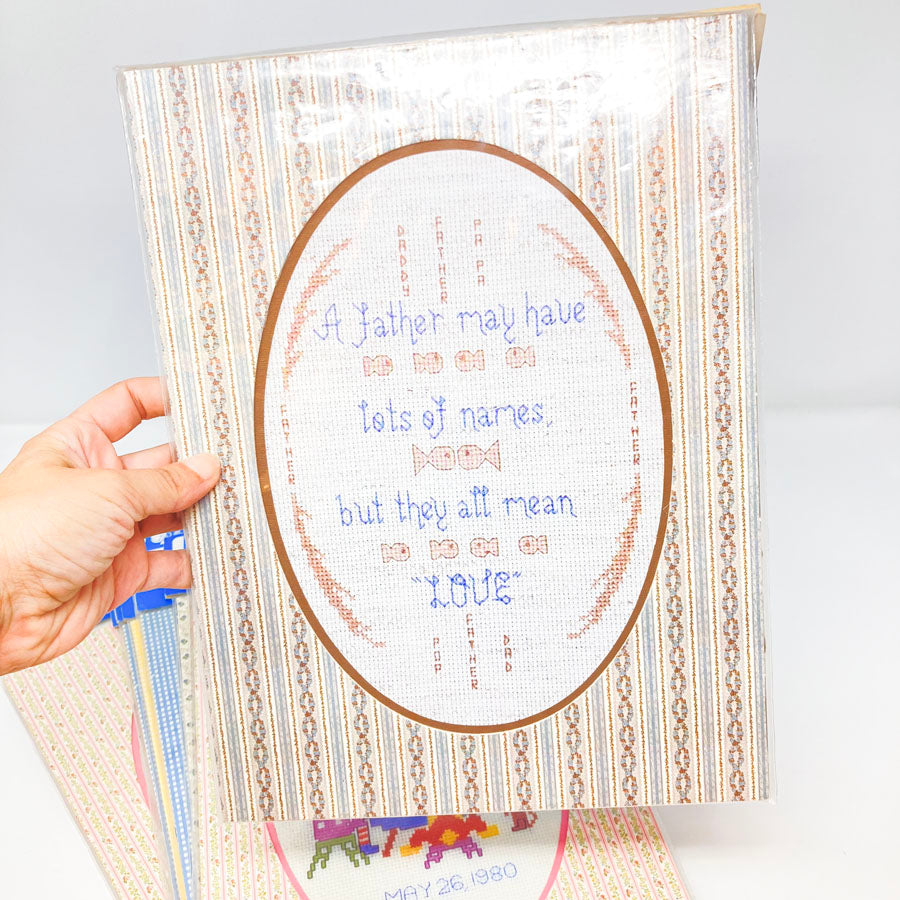 DADDY
FATHER
PAPA
A father may have
lots of names,
FATHER
FATHER
but they all mean
"LOVE"
POP
FATHER
DAD
MAY 26, 1980